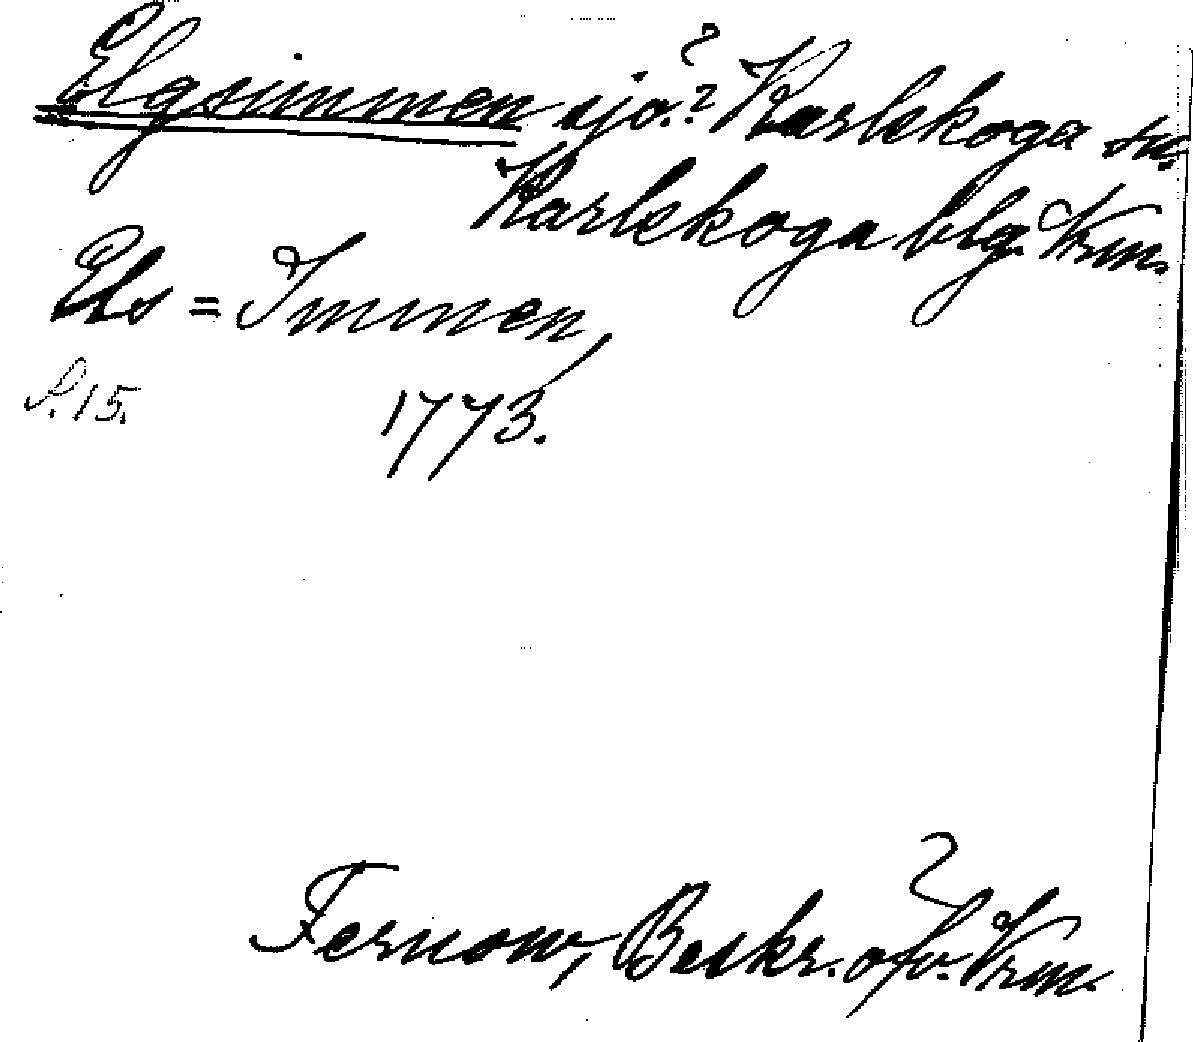 Elgsimmen sjö? ? Karlskoga sn.
Karlskoga blg. Vrm.
Els = Immen,
S. 15.
1773.
Fernow, Beskr. öfv. Vrm.